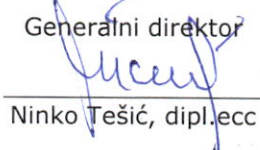 Generalni direktor
Ninko Tešić, dipl.ecc